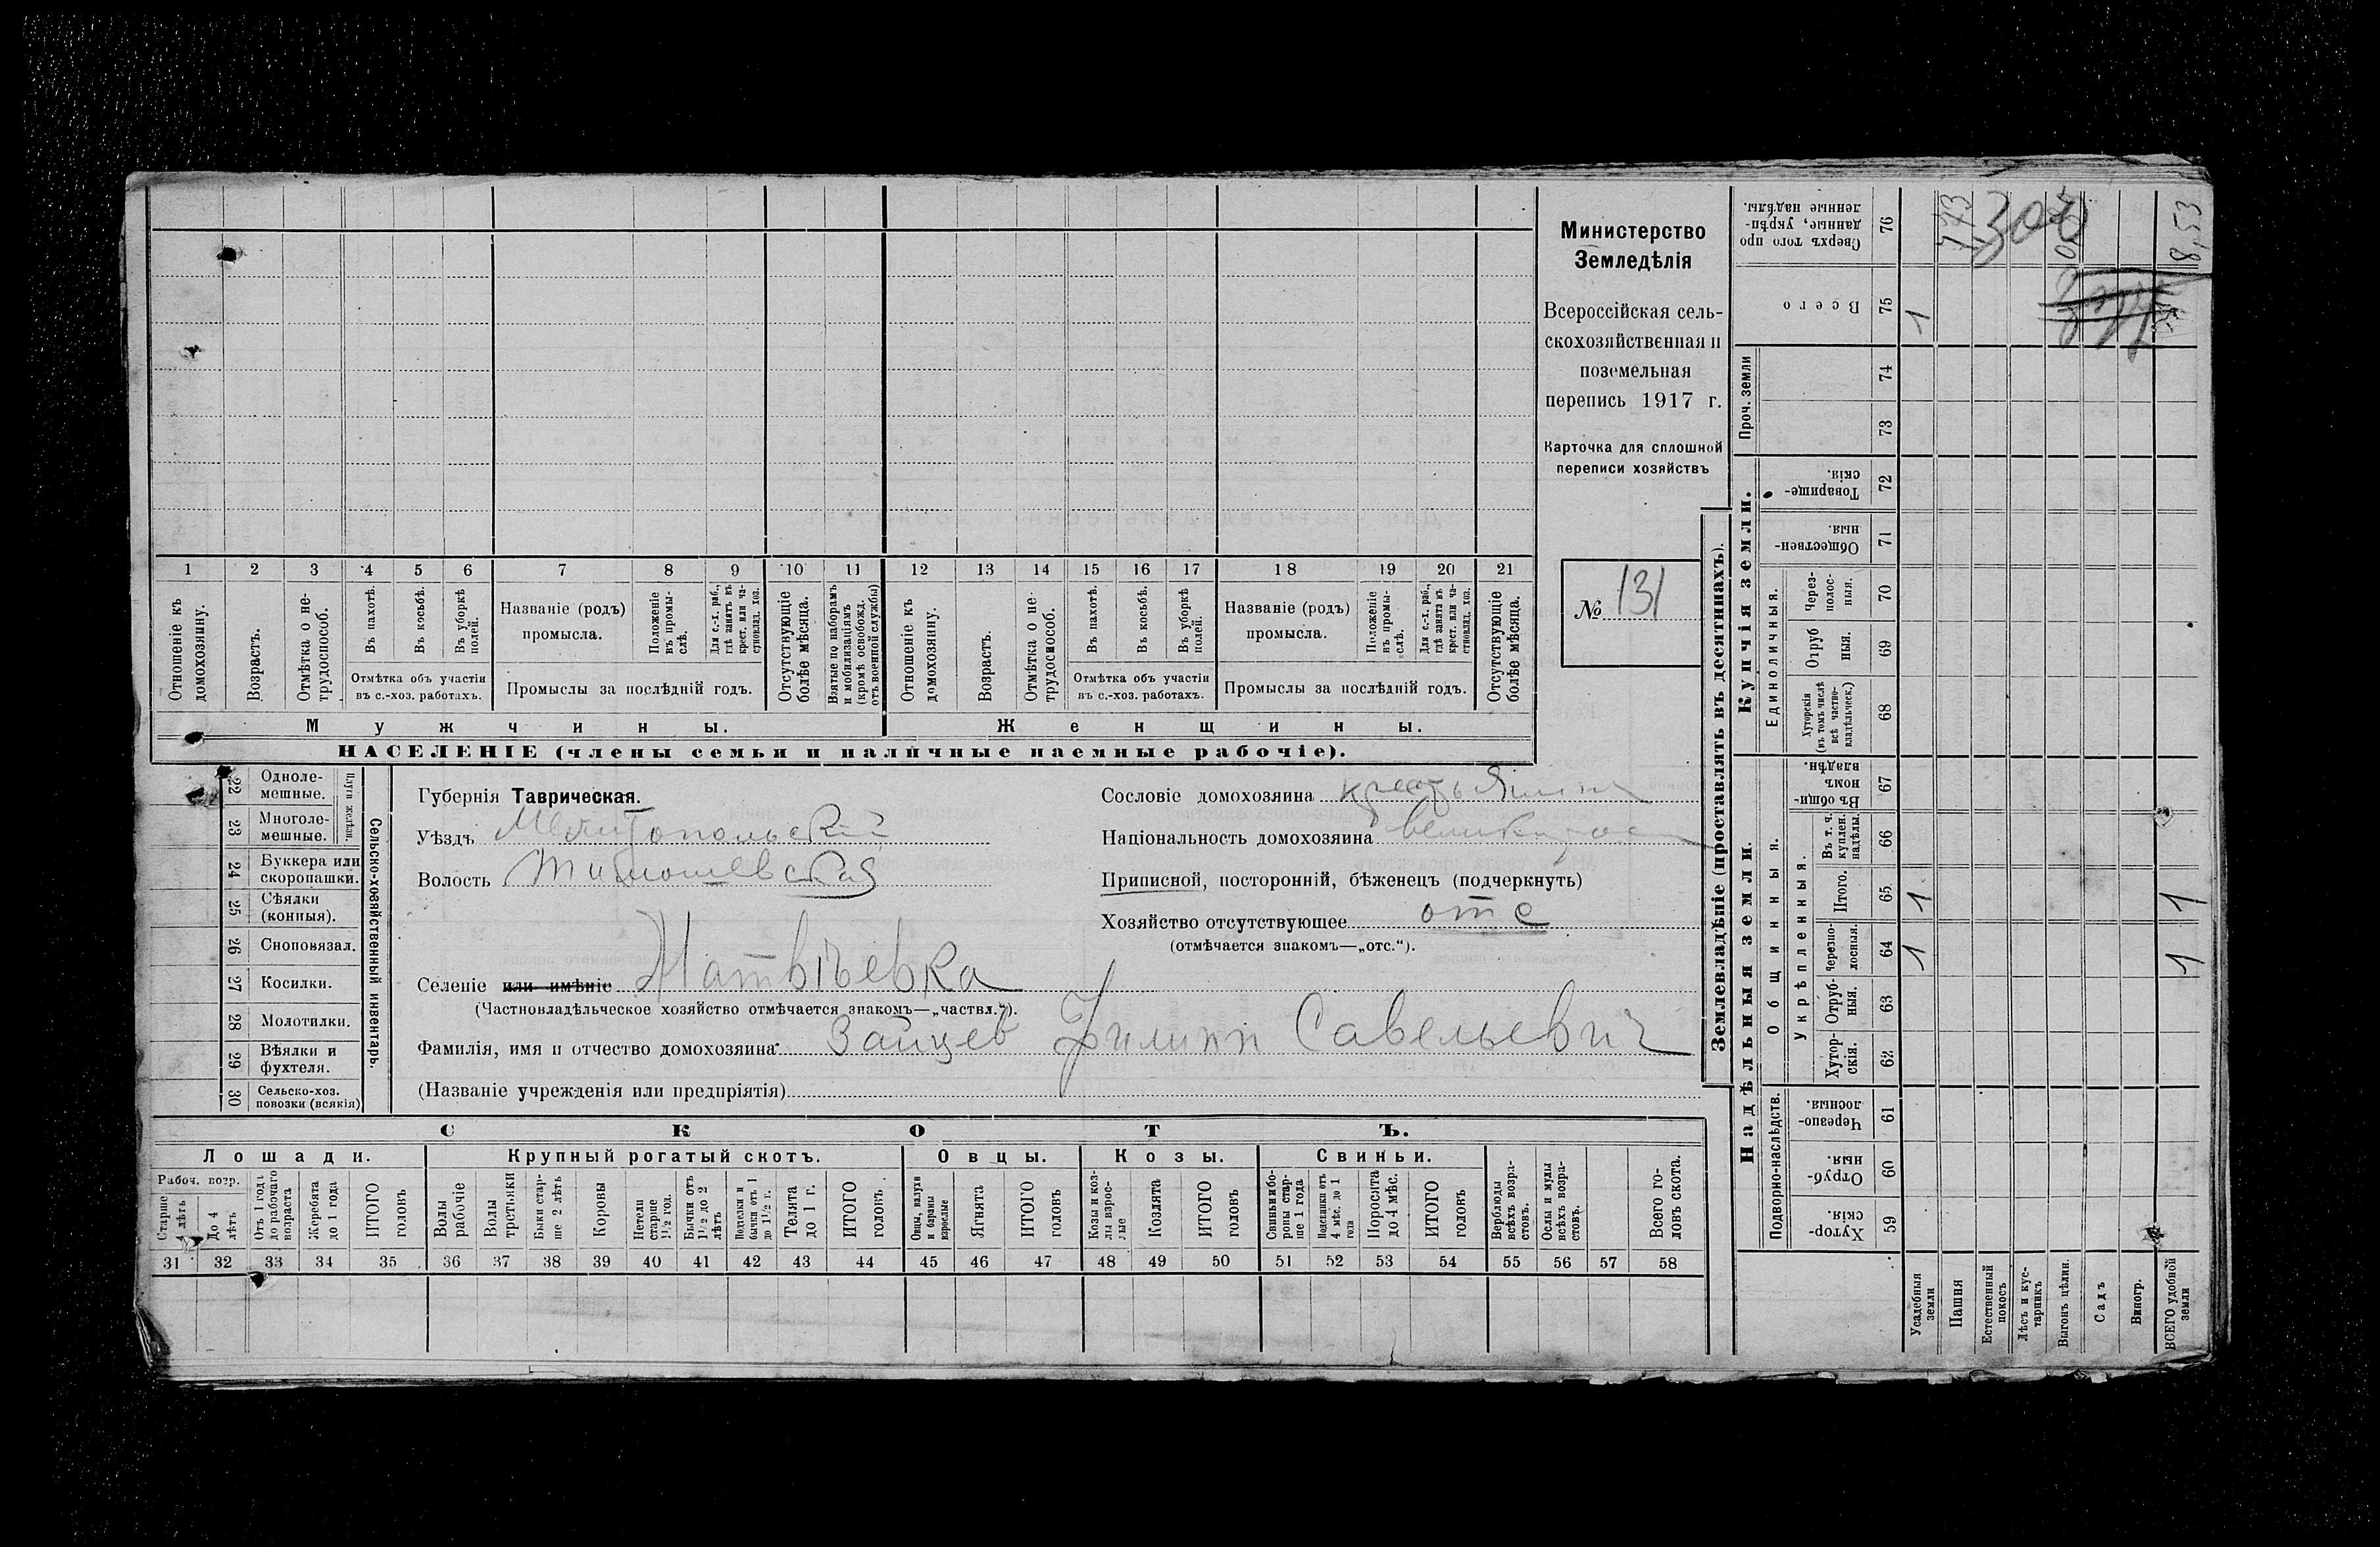 Министерство
Земледѣлія
Всероссійская сель-
скохозяйственная и
поземельная
перепись 1917 г.
Карточка для сплошной
переписи хозяйствъ
№ 131
1 2 3 4 5 6 7 8 9 10 11 12 13 14 15 16 17 18 19 20 21
Отношеніе къ домохозяину.
Возрастъ.
Отмѣтка о не-трудоспособ.
Въ пахотѣ.
Въ косьбѣ.
Въ уборкѣ полей.
Отмѣтка объ участіи
въ с.-хоз. работахъ.
Названіе (родъ)
промысла.
Положеніе въ промы-слѣ.
Для с.-х. раб., гдѣ занятъ въ крест. или ча-стновлад. хоз.
Промыслы за послѣдній годъ.
Отсутствующіе болѣе мѣсяца.
Взятые по наборамъ и мобилизаціямъ (кромѣ освобожд. отъ военной службы)
Отношеніе къ домохозяину.
Возрастъ.
Отмѣтка о не-трудоспособ.
Въ пахотѣ.
Въ косьбѣ.
Въ уборкѣ полей.
Отмѣтка объ участіи
въ с.-хоз. работахъ.
Названіе (родъ)
промысла.
Положеніе въ промы-слѣ.
Для с.-х. раб., гдѣ занята въ крест. или ча-стновлад. хоз.
Промыслы за послѣдній годъ.
Отсутствующіе болѣе мѣсяца.
Мужчины.
Женщины.
НАСЕЛЕНІЕ (члены семьи и наличные наемные рабочіе).
22 Одноле-мешные.
23 Многоле-мешные.
Плуги желѣзн.
24 Буккера или скоропашки.
25 Сѣялки (конныя).
26 Сноповязал.
27 Косилки.
28 Молотилки.
29 Вѣялки и фухтеля.
30 Сельско-хоз. повозки (всякія)
Сельско-хозяйственный инвентарь.
Губернія Таврическая.
Уѣздъ Мелитопольскій
Волость Тимошевская
Селеніе или имѣніе Матвѣевка
(Частновладѣльческое хозяйство отмѣчается знакомъ—„частвл.“).
Фамилія, имя и отчество домохозяина: Зайцев Филипп Савельевич
(Названіе учрежденія или предпріятія)
Сословіе домохозяина крестьянин
Національность домохозяина великорос
Приписной, посторонній, бѣженецъ (подчеркнуть)
Хозяйство отсутствующее отс
(отмѣчается знакомъ—„отс.“).
СКОТЪ.
Лошади.
Крупный рогатый скотъ.
Овцы.
Козы.
Свиньи.
Рабоч. возр.
Старше 4 лѣтъ
До 4 лѣтъ
Отъ 1 года до рабочаго возраста
Жеребята до 1 года
ИТОГО головъ
Волы рабочіе
Волы третьяки
Быки стар-ше 2 лѣтъ
Коровы
Нетели старше 1 1/2 год.
Бычки отъ 1 1/2 до 2 лѣтъ
бычки отъ 1 до 1 1/2 г.
Телята до 1 г.
ИТОГО головъ
Овцы, валухи и бараны взрослые
Ягнята
ИТОГО головъ
Козы и коз-лы взрос-лые
Козлята
ИТОГО головъ
Свиньи и бо-ровы стар-ше 1 года
Подсвинки отъ 4 мѣс. до 1 года
Поросята до 4 мѣс.
ИТОГО головъ
Верблюды всѣхъ возра-стовъ.
Ослы и мулы всѣхъ возра-стовъ.
Всего го-ловъ скота.
31 32 33 34 35 36 37 38 39 40 41 42 43 44 45 46 47 48 49 50 51 52 53 54 55 56 57 58
Землевладѣніе (проставлять въ десятинахъ).
Надѣльныя земли.
Купчія земли.
Проч. земли
Подворно-наслѣдств.
Общинныя.
Укрѣпленныя.
Единоличныя.
Хутор-скія. 59
Отруб-ныя. 60
Черезпо-лосныя. 61
Хутор-скія. 62
Отруб-ныя. 63
Черезпо-лосныя. 64
Итого. 65
Въ т. ч. куплен. надѣлы. 66
Въ общи-номъ владѣн. 67
Хуторскія (въ томъ числѣ всѣ частно-владѣльческ.) 68
Отруб ныя. 69
Через-полос-ныя. 70
Обществен-ныя. 71
Товарище-скія. 72
73
74
Всего 75
Сверхъ того про данные, укрѣп-ленные надѣлы. 76
Усадебныя земли 1 1 1
Пашня
Естественный покосъ
Лѣсъ и кус-тарникъ
Выгонъ цѣлин.
Садъ
Виногр.
ВСЕГО удобной земли 1 1 8,53